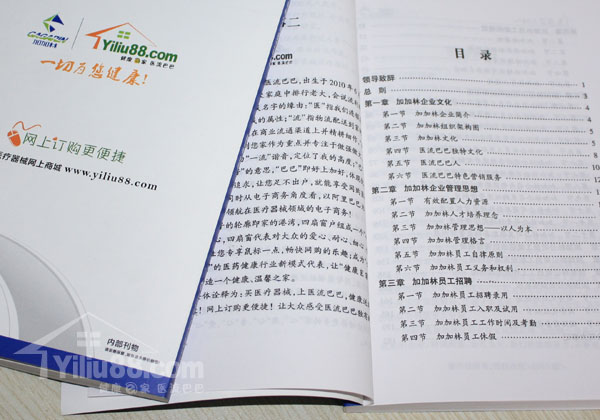 Yiliu88.com
健康e家 医流巴巴
一切为您健康!
网上订购更便捷
医疗器械网上商城 www.yiliu88.com
内部刊物
医流巴巴,出生于2010年
家庭中排行老大,会说流
名字的缘由:"医"指我们
的属性;"流"指物流配送
在商业流通渠道上并精耕细
们您家作为重点并专注于做强做
"一流"谐音,定位了我的高度;"巴
"的意思,"巴巴"即好上加好,体
追求,让您足不出户,就能享受网
时从电子商务角度看,以阿里巴
领航在医疗器械领域的电子商务!
的轮廓即家的港湾,四扇窗户组成一个
,四扇窗代表对大众的爱心、耐心、细心
您专享鼠标一点,畅快网购的乐趣;成为
的医药健康行业新模式代表,让"健康
造一个健康、温馨之家。
体诠释为:买医疗器械,上医流巴巴,健康
!网上订购更便捷!让大众感受医流巴巴独
目 录
领导致辞
总 则 1
第一章 加加林企业文化 3
第一节 加加林企业简介 4
第二节 加加林组织架构图 4
第三节 加加林文化 5
第四节 医流巴巴独特文化 6
第五节 医流巴巴人 8
第六节 医流巴巴特色营销服务 10
第二章 加加林企业管理思想 12
第一节 有效配置人力资源
第二节 加加林人才培养理念
第三节 加加林管理思想——以人为本
第四节 加加林管理格言
第五节 加加林员工自律原则
第六节 加加林员工义务和权利
第三章 加加林员工招聘
第一节 加加林员工招聘录用
第二节 加加林员工入职及试用
第三节 加加林员工工作时间及考勤
第四节 加加林员工休假
Yiliu88.com
健康e家 医流巴巴